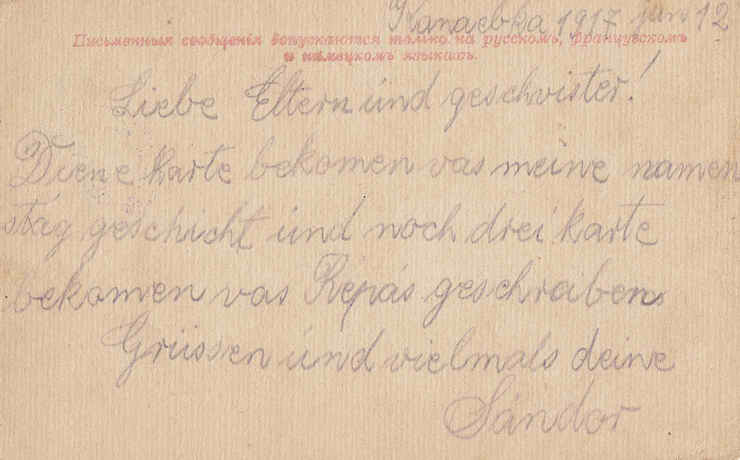 Kanaevka 1917 jun 12
Письменныя сообщенія допускаются только на русскомъ, французскомъ
и нѣмецкомъ языкахъ.
Liebe Eltern ünd geschvister!
Diene karte bekomen vas meine namen
stag geschicht ünd noch drei karte
bekomen vas Répás geschraiben
Grüssen ünd vielmals deine
Sándor